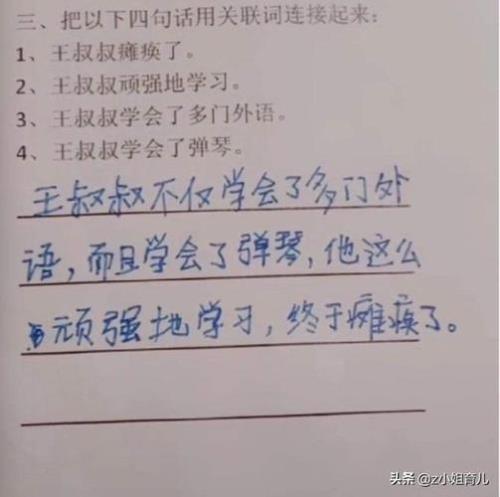 三、把以下四句话用关联词连接起来：
1、王叔叔瘫痪了。
2、王叔叔顽强地学习。
3、王叔叔学会了多门外语。
4、王叔叔学会了弹琴。
王叔叔不仅学会了多门外
语，而且学会了弹琴，他这么
顽强地学习，终于瘫痪了。
头条 @z小姐育儿